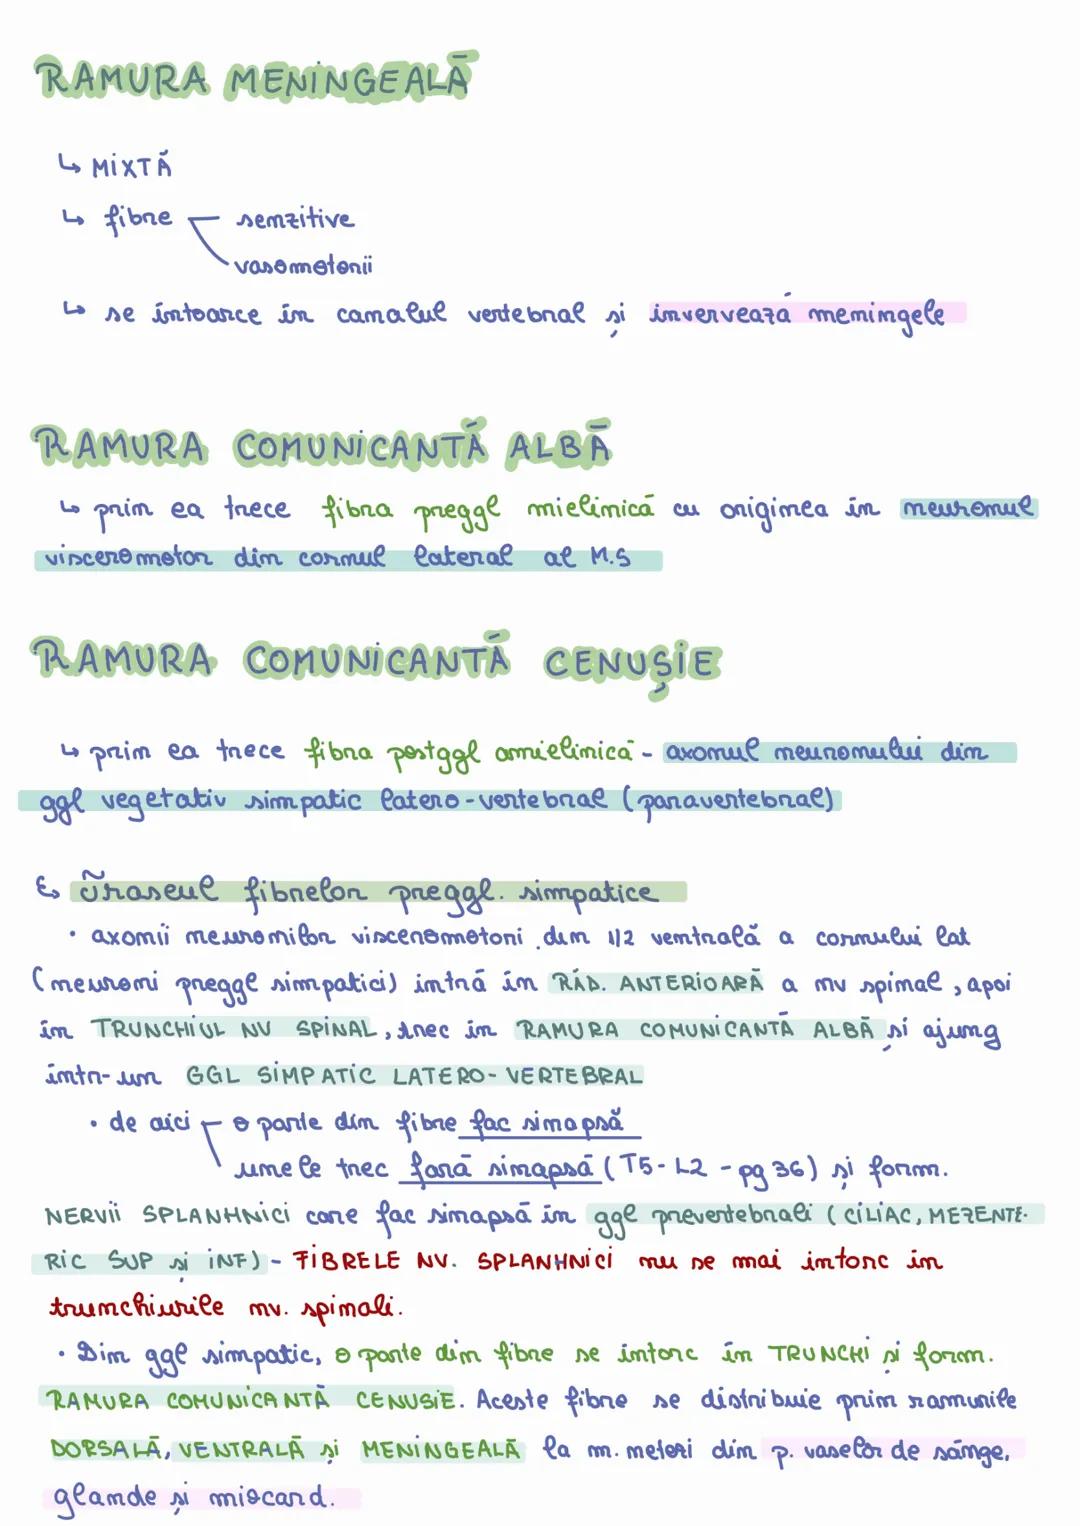 RAMURA MENINGEALĂ
↳ MIXTĂ
↳ fibre senzitive
vasomotorii
↳ se întoarce în canalul vertebral și invervează meningele
RAMURA COMUNICANTĂ ALBĂ
↳ prin ea trece fibra preggl mielinică cu originea în neuronul
visceromotor din cornul lateral al M.S
RAMURA COMUNICANTĂ CENUȘIE
↳ prin ea trece fibra postggl amielinică - axonul neuronului din
ggl vegetativ simpatic latero-vertebral (paravertebral)
↳ Traseul fibrelor preggl. simpatice
• axonii neuronilor visceromotori din 1/2 ventrală a cornului lat
(neuroni preggl simpatici) intră în RĂD. ANTERIOARĂ a nv spinal, apoi
în TRUNCHIUL NV SPINAL, trec in RAMURA COMUNICANTĂ ALBĂ și ajung
intr-un GGL SIMPATIC LATERO-VERTEBRAL
• de aici o parte din fibre fac sinapsă
unele trec fară sinapsă (T5-L2 - pg 36) și form.
NERVII SPLANHNICI care fac sinapsă in ggl prevertebrali (CILIAC, MEZENTE-
RIC SUP și INF) - FIBRELE NV. SPLANHNICI nu se mai intorc in
trunchiurile nv. spinali.
• Din ggl simpatic, o parte din fibre se intorc in TRUNCHI și form.
RAMURA COMUNICANTĂ CENUSIE. Aceste fibre se distribuie prin ramurile
DORSALĂ, VENTRALĂ și MENINGEALĂ la m. netezi din p. vaselor de sânge,
glande și miocard.